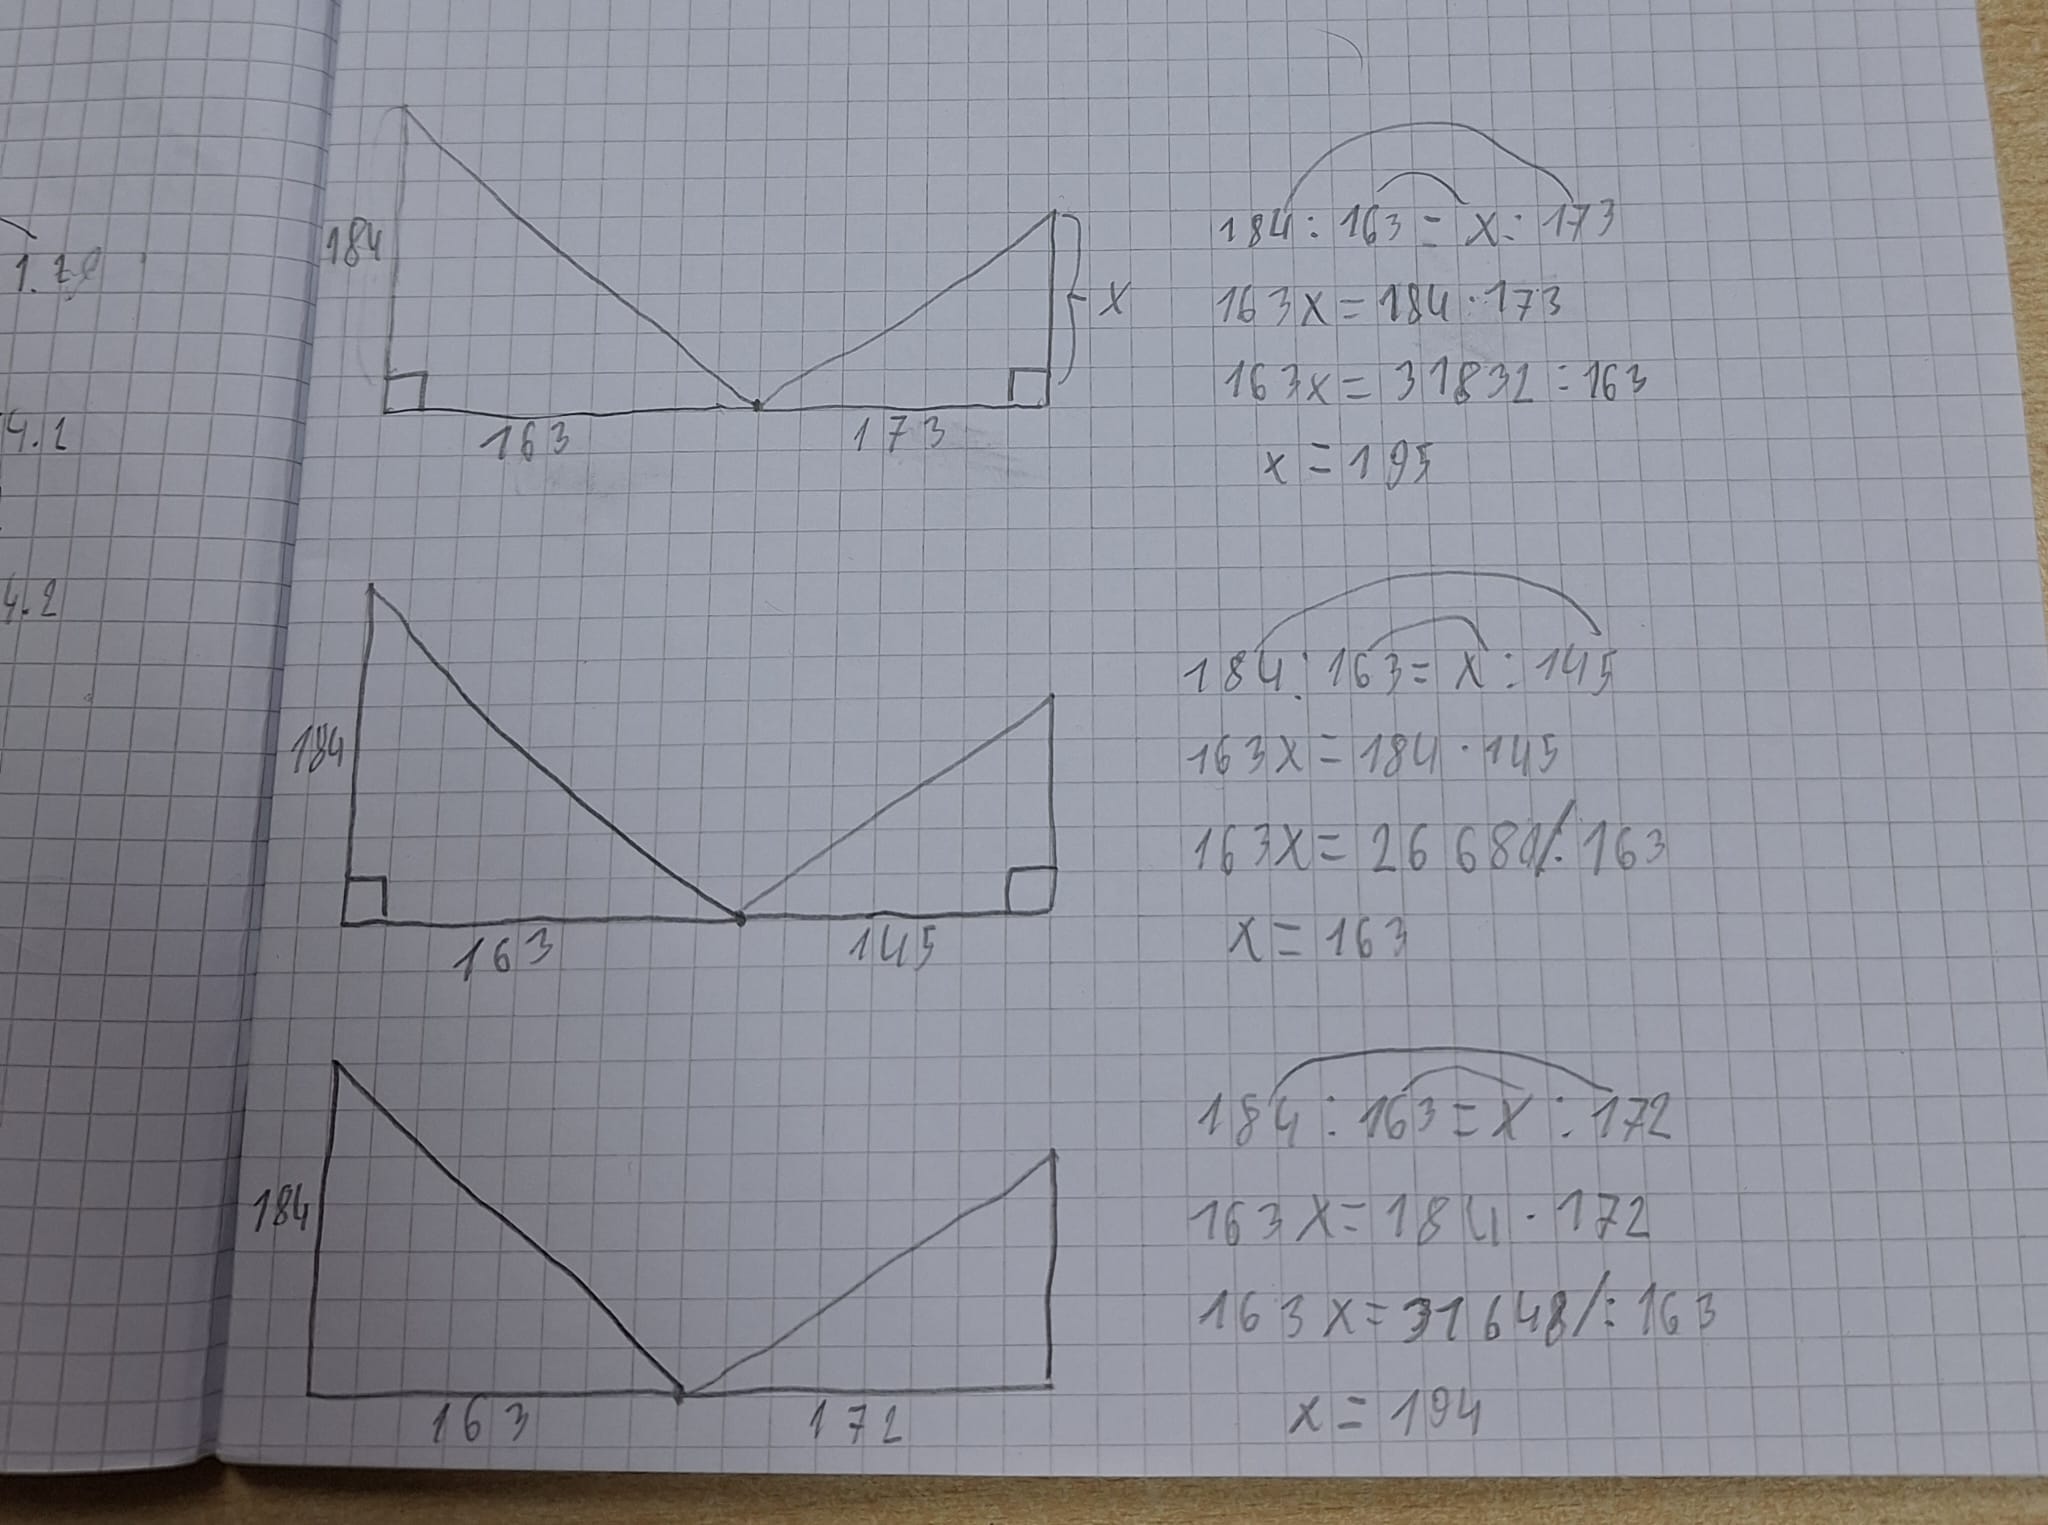 1.78
4.1
4.2
184
x
163
173
184 : 163 = x : 173
163x = 184 · 173
163x = 31832 : 163
x = 195
184
163
145
184 : 163 = x : 145
163x = 184 · 145
163x = 26 680 /: 163
x = 163
184
163
172
184 : 163 = x : 172
163x = 184 · 172
163x = 31648 /: 163
x = 194